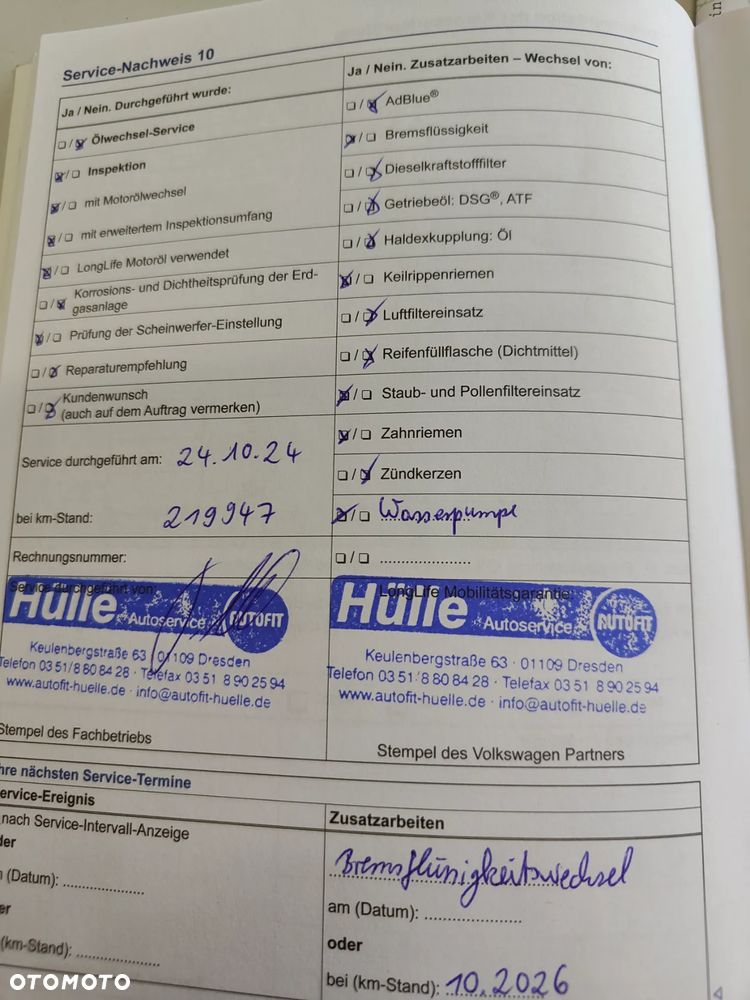 Service-Nachweis 10
Ja / Nein. Durchgeführt wurde:
❏ / ☒ Ölwechsel-Service
☒ / ❏ Inspektion
☒ / ❏ mit Motorölwechsel
☒ / ❏ mit erweitertem Inspektionsumfang
☒ / ❏ LongLife Motoröl verwendet
❏ / ☒ Korrosions- und Dichtheitsprüfung der Erd-
gasanlage
☒ / ❏ Prüfung der Scheinwerfer-Einstellung
❏ / ☒ Reparaturempfehlung
❏ / ☒ Kundenwunsch
(auch auf dem Auftrag vermerken)
Service durchgeführt am: 24.10.24
bei km-Stand: 219947
Rechnungsnummer:
Service durchgeführt von:
Hülle Autoservice AUTOFIT
Keulenbergstraße 63 · 01109 Dresden
Telefon 03 51/8 80 84 28 · Telefax 03 51 8 90 25 94
www.autofit-huelle.de · info@autofit-huelle.de
Stempel des Fachbetriebs
Ja / Nein. Zusatzarbeiten – Wechsel von:
❏ / ☒ AdBlue®
☒ / ❏ Bremsflüssigkeit
❏ / ☒ Dieselkraftstofffilter
❏ / ☒ Getriebeöl: DSG®, ATF
❏ / ☒ Haldexkupplung: Öl
☒ / ❏ Keilrippenriemen
❏ / ☒ Luftfiltereinsatz
❏ / ☒ Reifenfüllflasche (Dichtmittel)
☒ / ❏ Staub- und Pollenfiltereinsatz
☒ / ❏ Zahnriemen
❏ / ☒ Zündkerzen
☒ / ❏ Wasserpumpe
❏ / ❏ ......................
LongLife Mobilitätsgarantie
Hülle Autoservice AUTOFIT
Keulenbergstraße 63 · 01109 Dresden
Telefon 03 51/8 80 84 28 · Telefax 03 51 8 90 25 94
www.autofit-huelle.de · info@autofit-huelle.de
Stempel des Volkswagen Partners
hre nächsten Service-Termine
ervice-Ereignis
nach Service-Intervall-Anzeige
der
(Datum): ....................
er
(km-Stand): ....................
Zusatzarbeiten
Bremsflüssigkeitswechsel
am (Datum): ......................
oder
bei (km-Stand): 10.2026
OTOMOTO
in